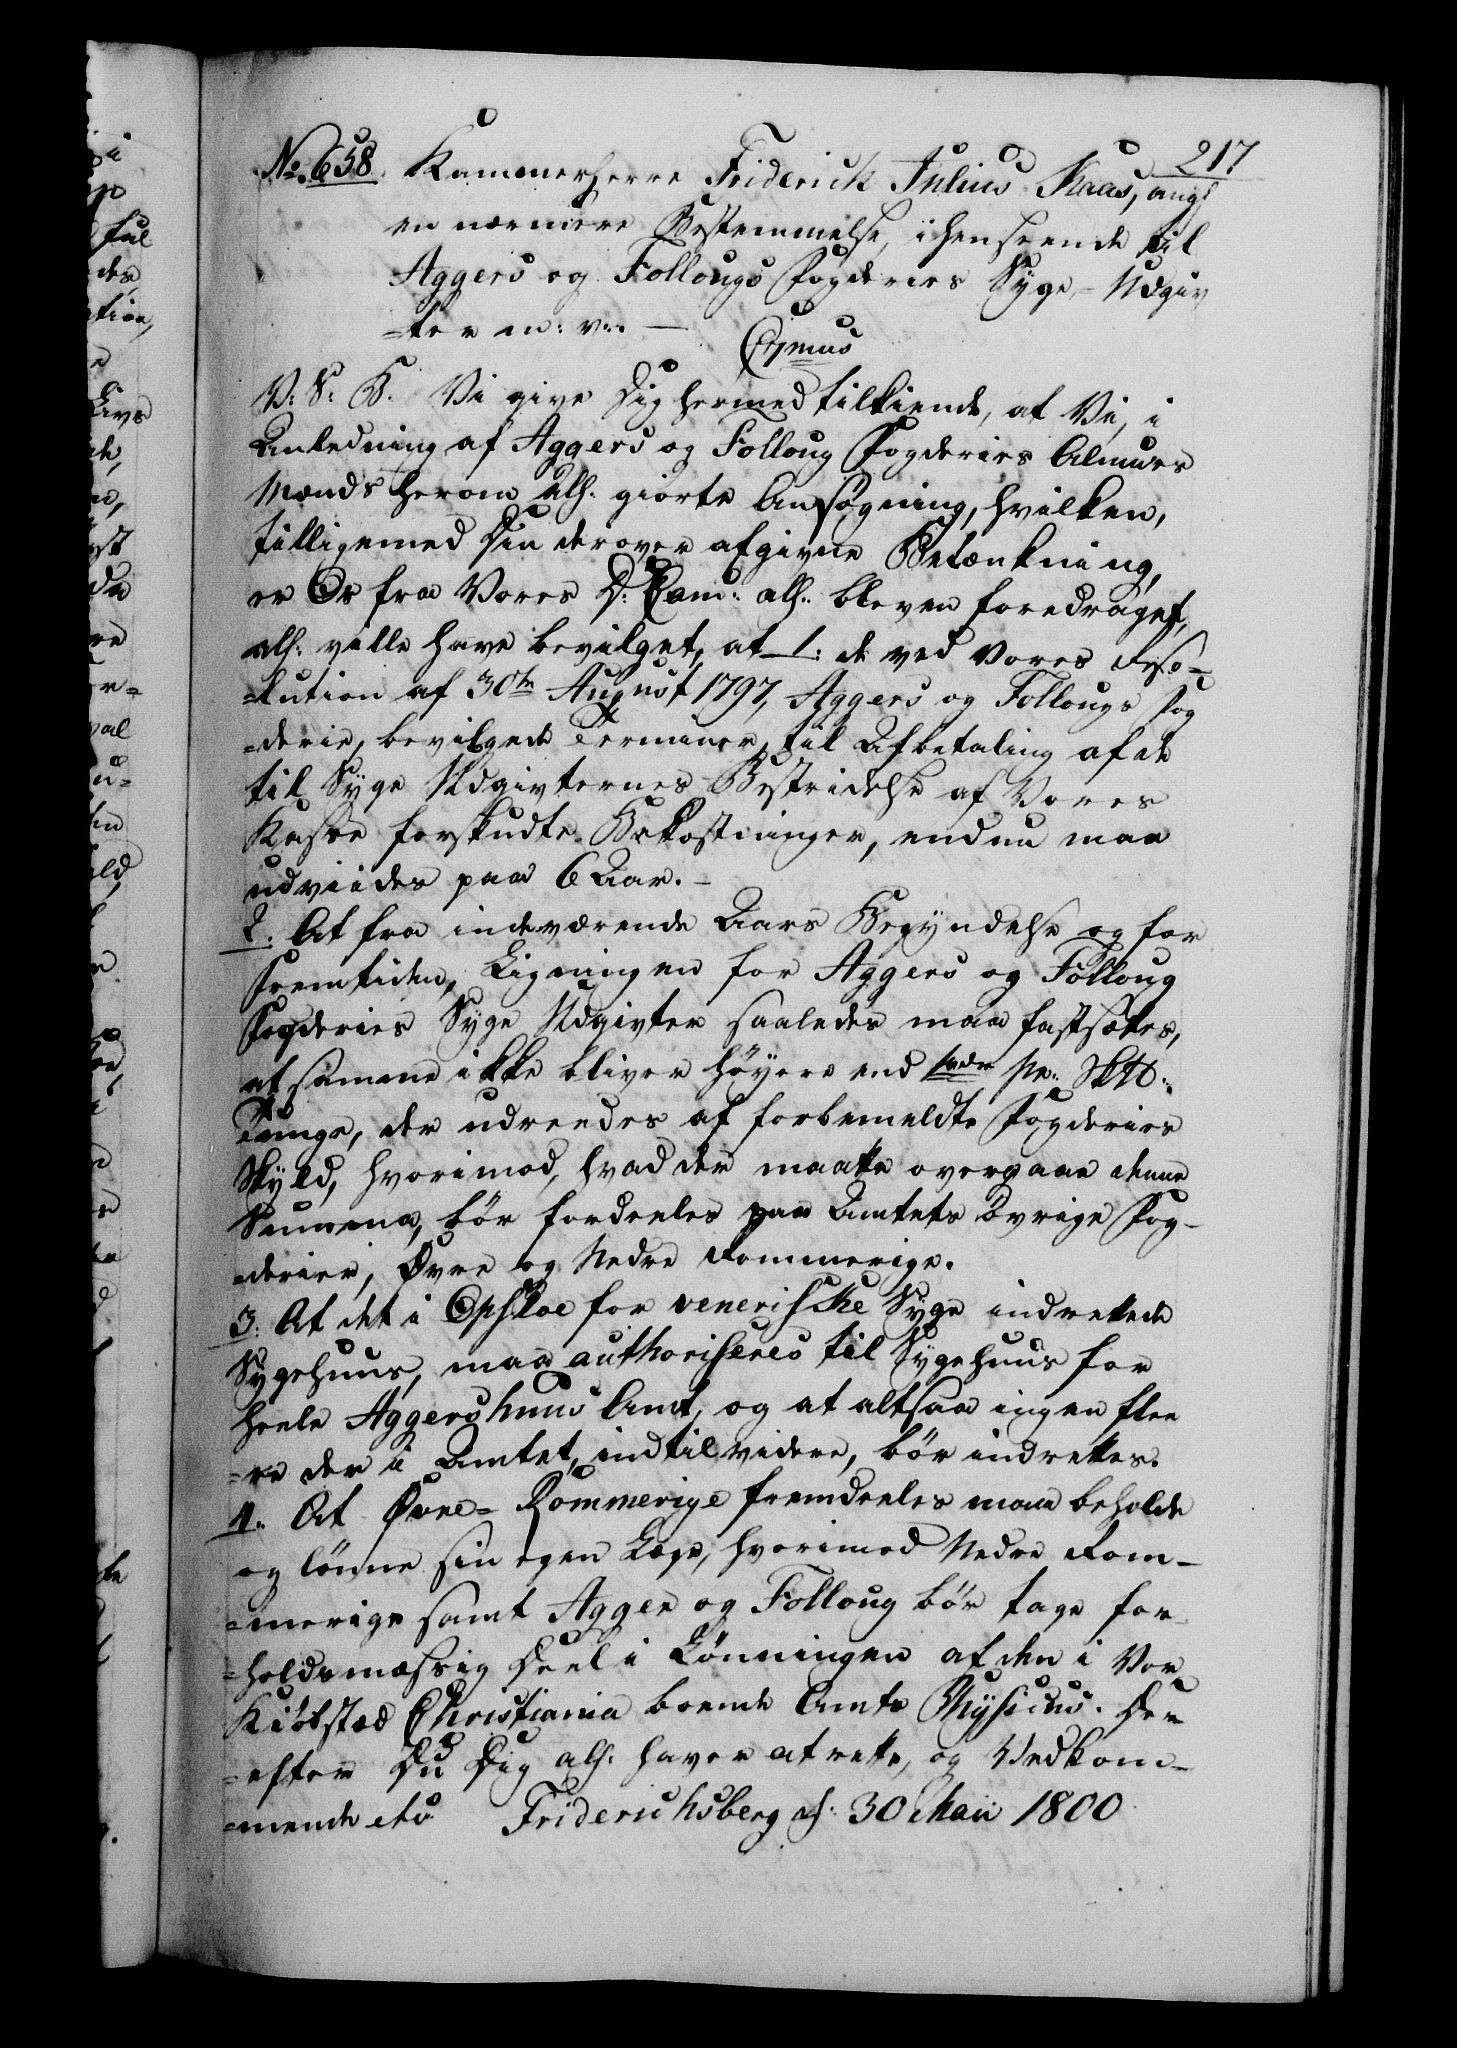 217
No. 658. Kammerherre Friderich Julius Kaas, ang:
en nærmere Bestemmelse, i henseende til
Aggers og Follougs Fogderies Syge-Udgiv
=ter m: v:. —
C 7mus
V: S: B. Vi give Dig hermed tilkiende, at Vi, i
Anledning af Aggers og Folloug Fogderies Almues
Mænds herom alh: giorte Ansøgning, hvilken,
tilligemed Din derover afgivne Betænkning,
er Os fra Vores D: Cam: alh: bleven foredraget,
alh: ville have bevilget, at 1: de ved Vores Reso=
=lution af 30te August 1797, Aggers og Follougs Fog
=derie, bevilgede Terminer, til Afbetaling af de
til Syge Udgivternes Bestridelse af Vores
Kasse forskudte Bekostninger, endnu maa
udviides paa 6 Aar. –
2. At fra indeværende Aars Begyndelse og for
Fremtiden, Ligningen for Aggers og Folloug
Fogderies Syge Udgivter saaledes maa fastsættes,
at samme ikke bliver høyere end pr:
Tunge, der udredes af forbemeldte Fogderies
Skyld, hvorimod, hvad der maatte overgaae denne
Summa, bør fordeeles paa Amtets øvrige Fog-
=derier, Øvre og Nedre Rommerige.
3. At det i Opsloe for veneriske Syge indrettede
Sygehuus, maa authoriseres til Sygehuus for
heele Aggershuus Amt, og at altsaa ingen flee
=re der i Amtet, indtil videre, bør indrettes.
4. At Øvre-Rommerige fremdeeles maa beholde
og lønne sin egen Læge, hvorimod Nedre Rom-
=merige samt Agger og Folloug bør tage for
=holdsmæssig Deel i Lønningen af den i Vor
Kiøbstæd Christiania boende Amts Physicus. Der
=efter Du Dig alh: haver at rette, og Vedkom-
=mende etc Friderichsberg d: 30 Maii 1800